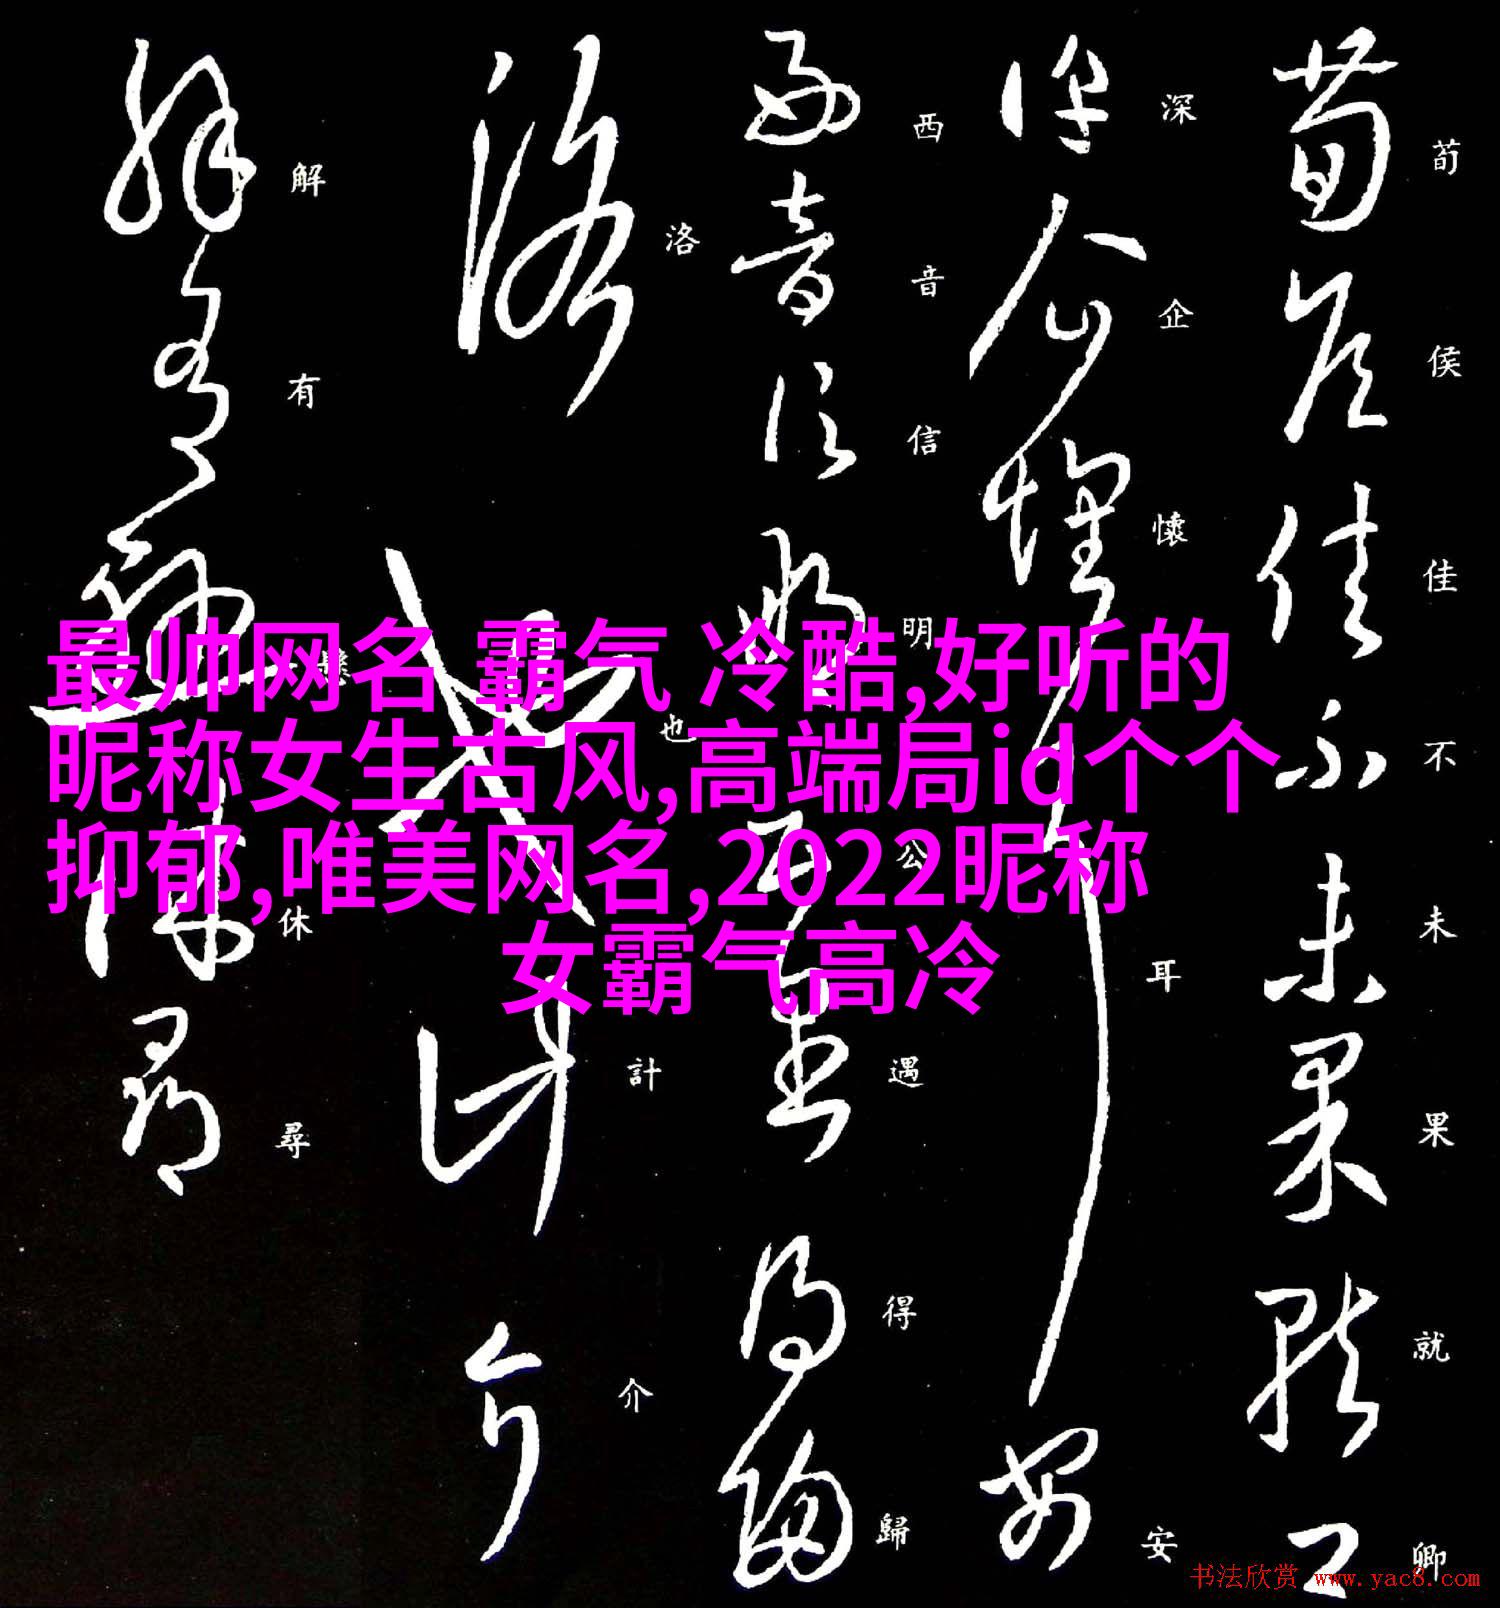 最帅网名 霸气 冷酷,好听的
昵称女生古风,高端局id个个
抑郁,唯美网名,2022昵称
女霸气高冷
荀侯佳不未果就卿
深企懷耳安
西音信明公遇得歸
洛也計介
解有休尋
书法欣赏 www.yac8.com